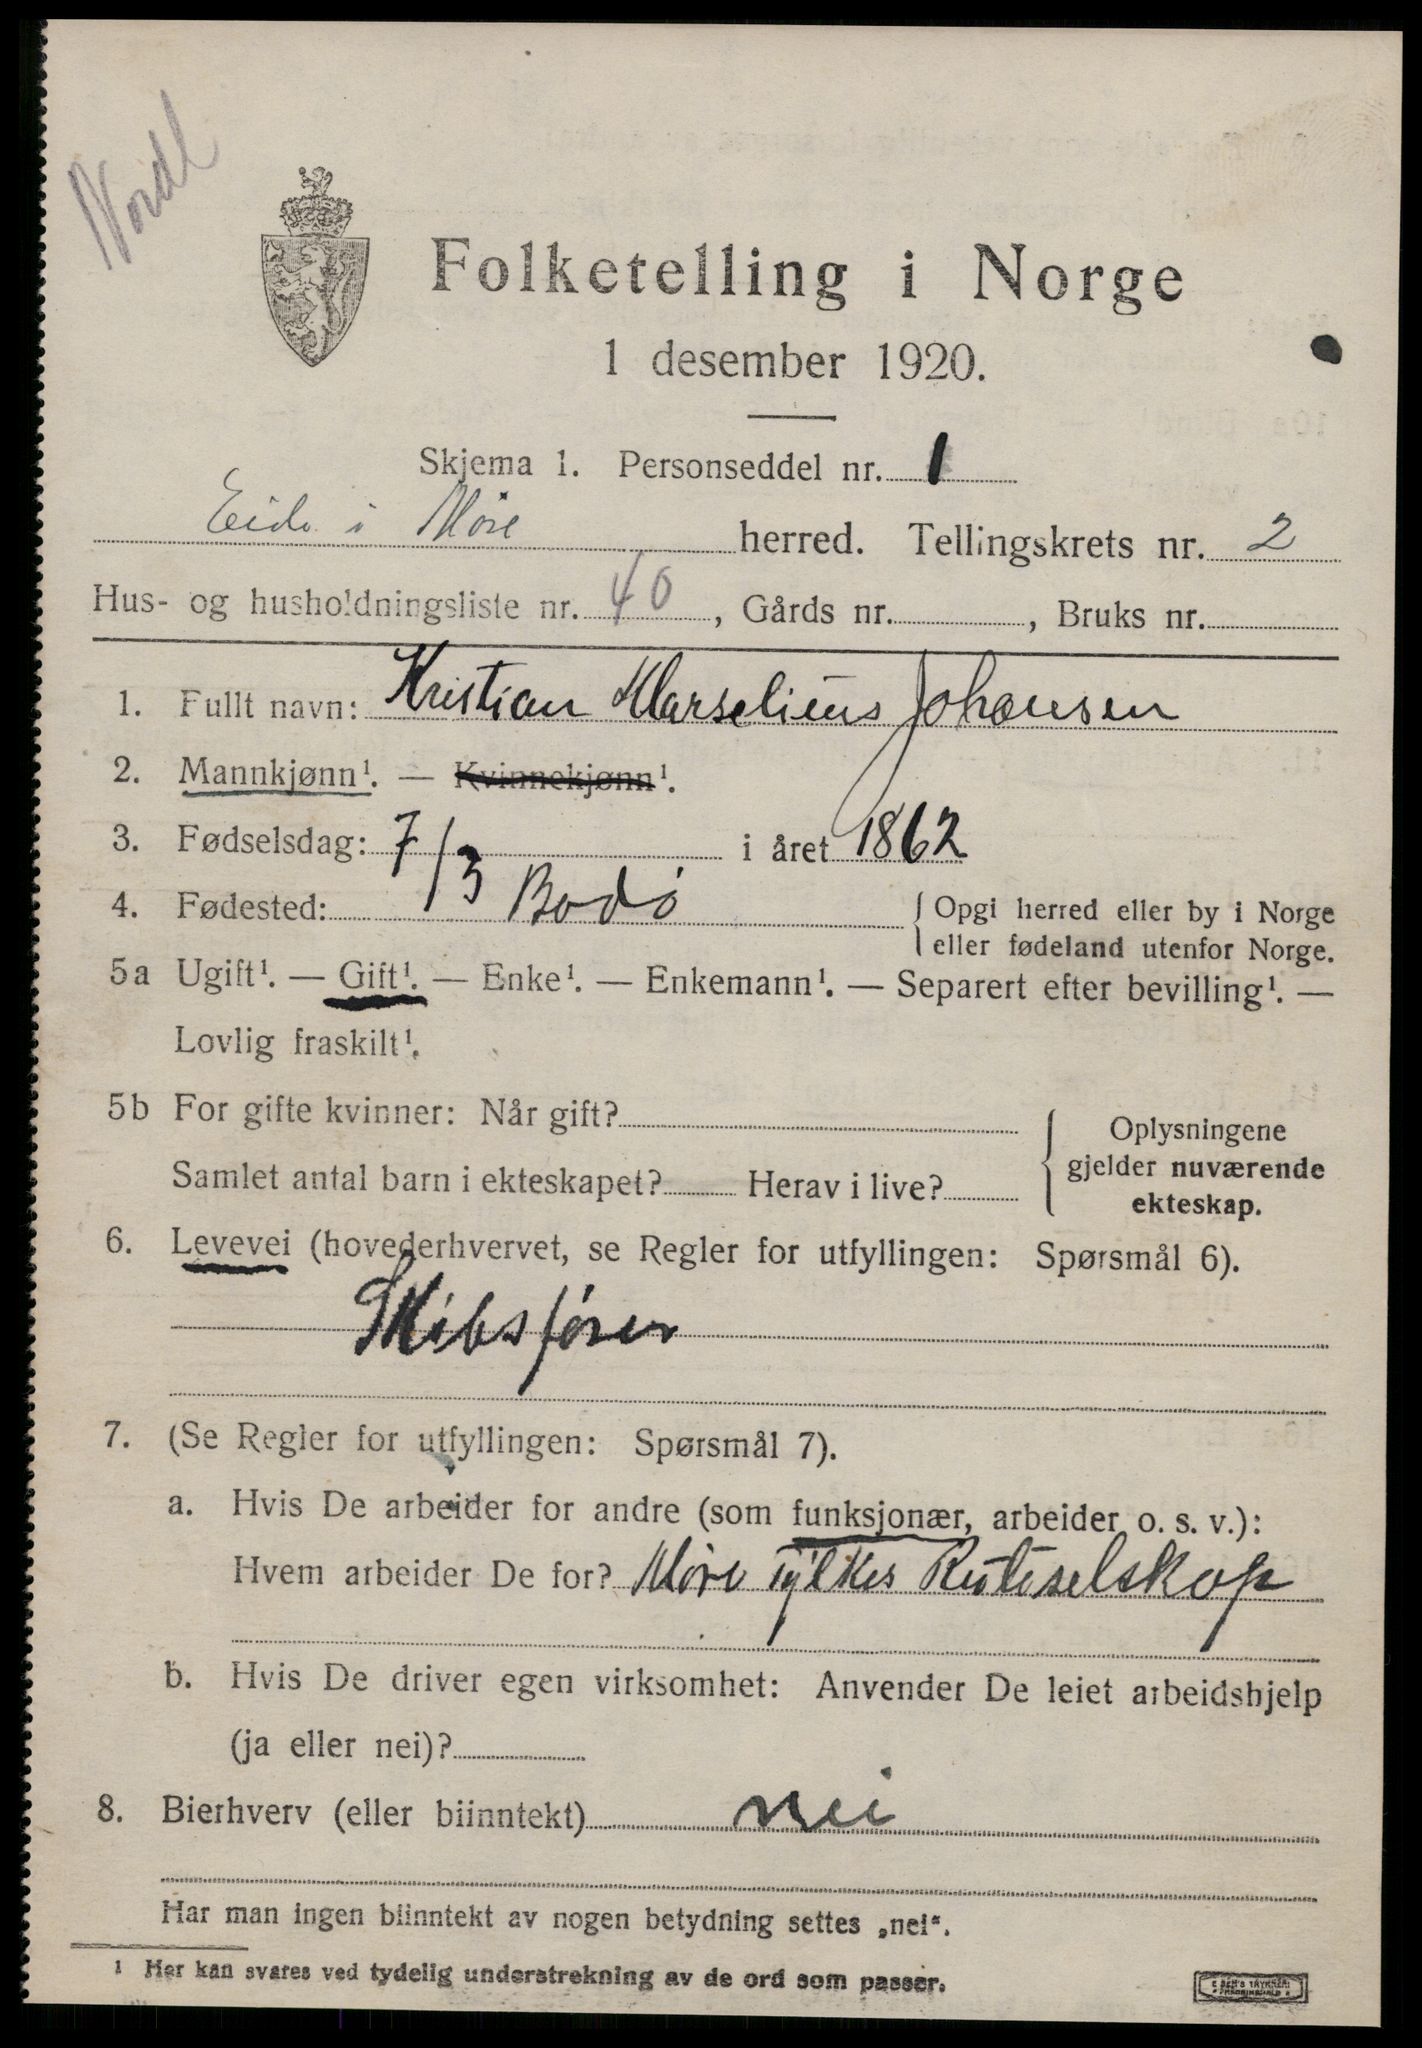 Nordl
Folketelling i Norge
1 desember 1920.
Skjema 1. Personseddel nr. 1
Eide i Møre herred. Tellingskrets nr. 2
Hus- og husholdningsliste nr. 40, Gårds nr. , Bruks nr.
1. Fullt navn: Kristian Marselius Johansen
2. Mannkjønn¹. — Kvinnekjønn¹.
3. Fødselsdag: 7/3 i året 1862
4. Fødested: Bodø { Opgi herred eller by i Norge
eller fødeland utenfor Norge.
5a Ugift¹. — Gift¹. — Enke¹. — Enkemann¹. — Separert efter bevilling¹. —
Lovlig fraskilt¹.
5b For gifte kvinner: Når gift?
Samlet antal barn i ekteskapet? Herav i live?
Oplysningene
gjelder nuværende
ekteskap.
6. Levevei (hovederhvervet, se Regler for utfyllingen: Spørsmål 6).
Skibsfører
7. (Se Regler for utfyllingen: Spørsmål 7).
a. Hvis De arbeider for andre (som funksjonær, arbeider o. s. v.):
Hvem arbeider De for? Møre fylkes Ruteselskap
b. Hvis De driver egen virksomhet: Anvender De leiet arbeidshjelp
(ja eller nei)?
8. Bierhverv (eller biinntekt) nei
Har man ingen biinntekt av nogen betydning settes „nei“.
¹ Her kan svares ved tydelig understrekning av de ord som passer.